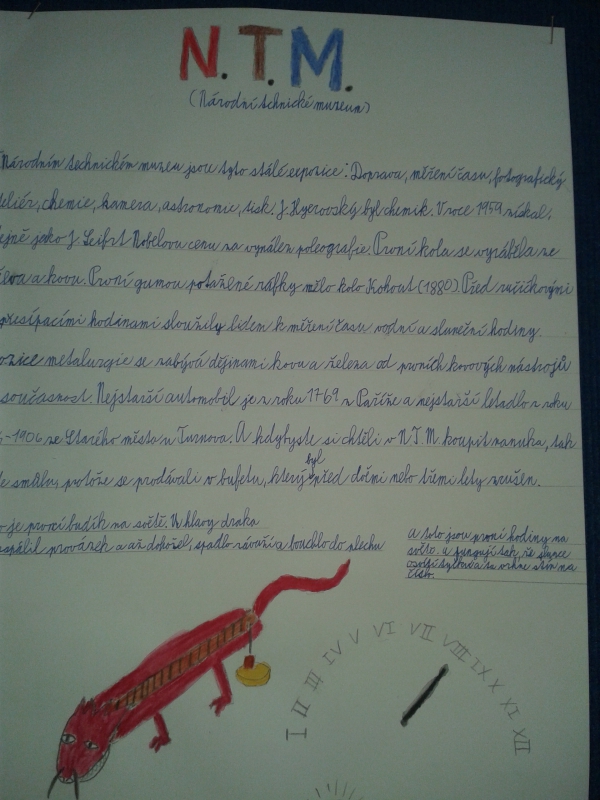 N.T.M.
(Národní technické muzeum)
Národním technickém muzeu jsou tyto stálé expozice: Doprava, měření času, fotografický
teliér, chemie, kamera, astronomie, tisk. J. Hyerovský byl chemik. V roce 1959 získal,
ejně jako J. Seifrt Nobelovu cenu za vynález poleografie. První kola se vyráběla ze
řeva a kovu. První gumou potažené ráfky mělo kolo Kohout (1880). Před ručičkovými
přesípacími hodinami sloužily lidem k měření času vodní a sluneční hodiny.
ozice metalurgie se zabývá dějinami kovu a železa od prvních kovových nástrojů
současnost. Nejstarší automobil je z roku 1769 z Paříže a nejstarší letadlo z roku
-1906 ze Starého města u Turnova. A kdybyste si chtěli v N.T.M. koupit nanuka, tak
te smůlu, protože se prodávali v bufetu, který byl před dvěmi nebo třemi lety zrušen.
o je první budík na světě. U hlavy draka
zapálil provázek a až dohořel, spadlo závaží a bouchlo do plechu
a toto jsou první hodiny na
světe a fungují tak, že slunce
osvítí tyčku a ta vrhne stín na
číslo.
I II III IV V VI VII VIII IX X XI XII